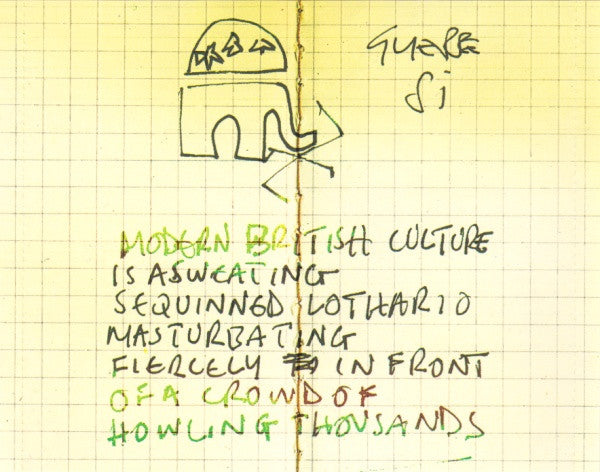 Si
MODERN BRITISH CULTURE
IS A SWEATING
SEQUINNED LOTHARIO
MASTURBATING
FIERCELY IN FRONT
OF A CROWD OF
HOWLING THOUSANDS